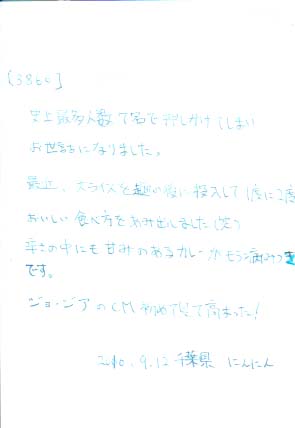 [3860]
史上最多人数で押しかけてしまい
お世話になりました。
最近、大ライスを麺の後に投入して1度に2度
おいしい食べ方をあみ出しました(笑)
辛さの中にも甘みのあるカレーがもう病みつき
です。
ジョ・ジアのCM初めて見て高まった!
2010.9.12 千葉県 にんにん